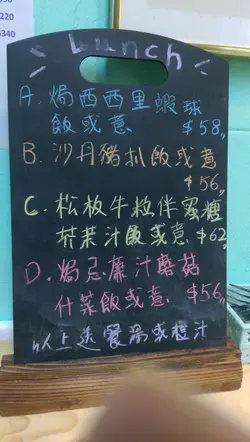 220
5340
Lunch
A. 焗西西里蝦球
飯或意 $58,,
B. 沙丹豬扒飯或意
$56,,
C. 松板牛粒伴蜜糖
芥茉汁飯或意 $62
D. 焗忌廉汁磨菇
什菜飯或意 $56,,
以上送餐湯或橙汁